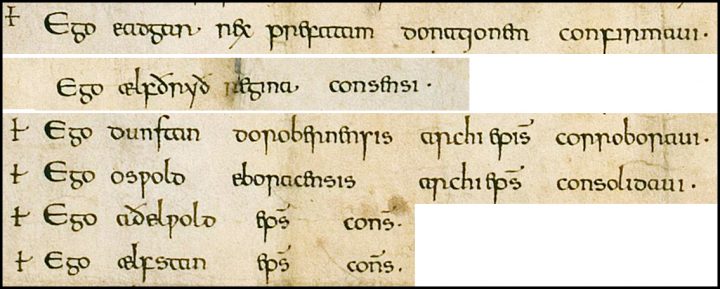 + Ego eadgar rex prefatam donationem confirmaui.
Ego ælfðryð regina consensi.
+ Ego dunstan dorobernensis archi epis̄ corroboraui.
+ Ego osƿold eboracensis archi eps̄ consolidaui.
+ Ego aðelƿold eps̄ cons̄.
+ Ego ælfstan eps̄ cons̄.